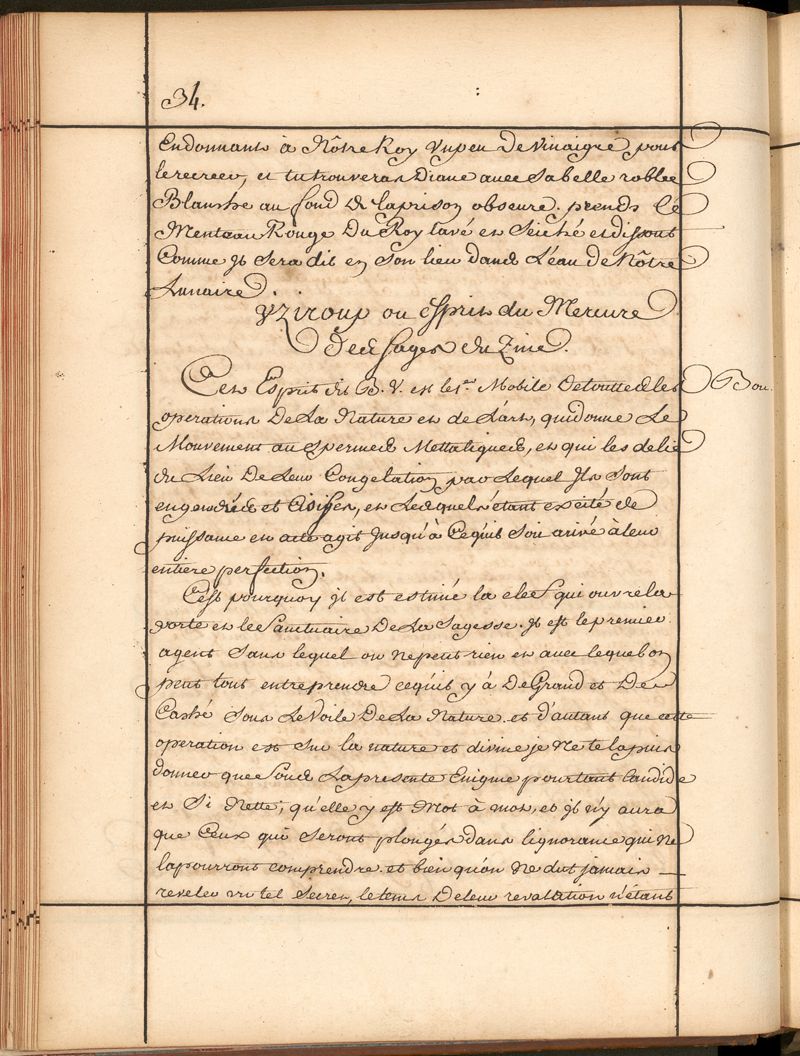 34.
Endonnant à Nôtre Roy un peu De Vinaigre pour
le recreer, et tu trouveras Diane avec Sa belle robbe
Blanche au fond de la prison obscure. prends le
Menteau Rouge Du Roy lavé et Seiché et dissout
Comme jl Sera dit en Son lieu dans L'eau de Nôtre
Lunaire.
ou Esprit du Mercure
Des Sages du Zinc.
Cet Esprit dit B. V. est le 1er Mobile De toutte les
B ou.
operations De La Nature et de L'art, qui donne Le
Mouvement au spermes Mettaliques, et qui les delie
du Lieu De Leur Congelation par Lequel Jls Sont
engendrés et et Lesquels étant excité de
puissance en acte agit Jusqu'à Cequ'il Soit arivé à leur
entiere perfection.
C'est pourquoy jl est estimé la clef qui ouvre la
porte et le Sanctuaire De La Sagesse. jl est le premier
agent Sans lequel on ne peut rien et avec lequel on
peut tout entreprendre cequ'il y à De Grand et De
Caché Sous Le Voile De La Nature. et d'autant que cette
operation est Sur la nature et divine je Ne te la puis
donner que Sous La presente Enigme pourtant Candide
et Si Nette, qu'elle y est Mot à mot, et jl n'y aura
que Ceux qui Seront plongés dans l'ignorance qui Ne
la pourront comprendre. et bien qu'on Ne dut jamais
reveler un tel Secret, le tems De leur revalation n'étant